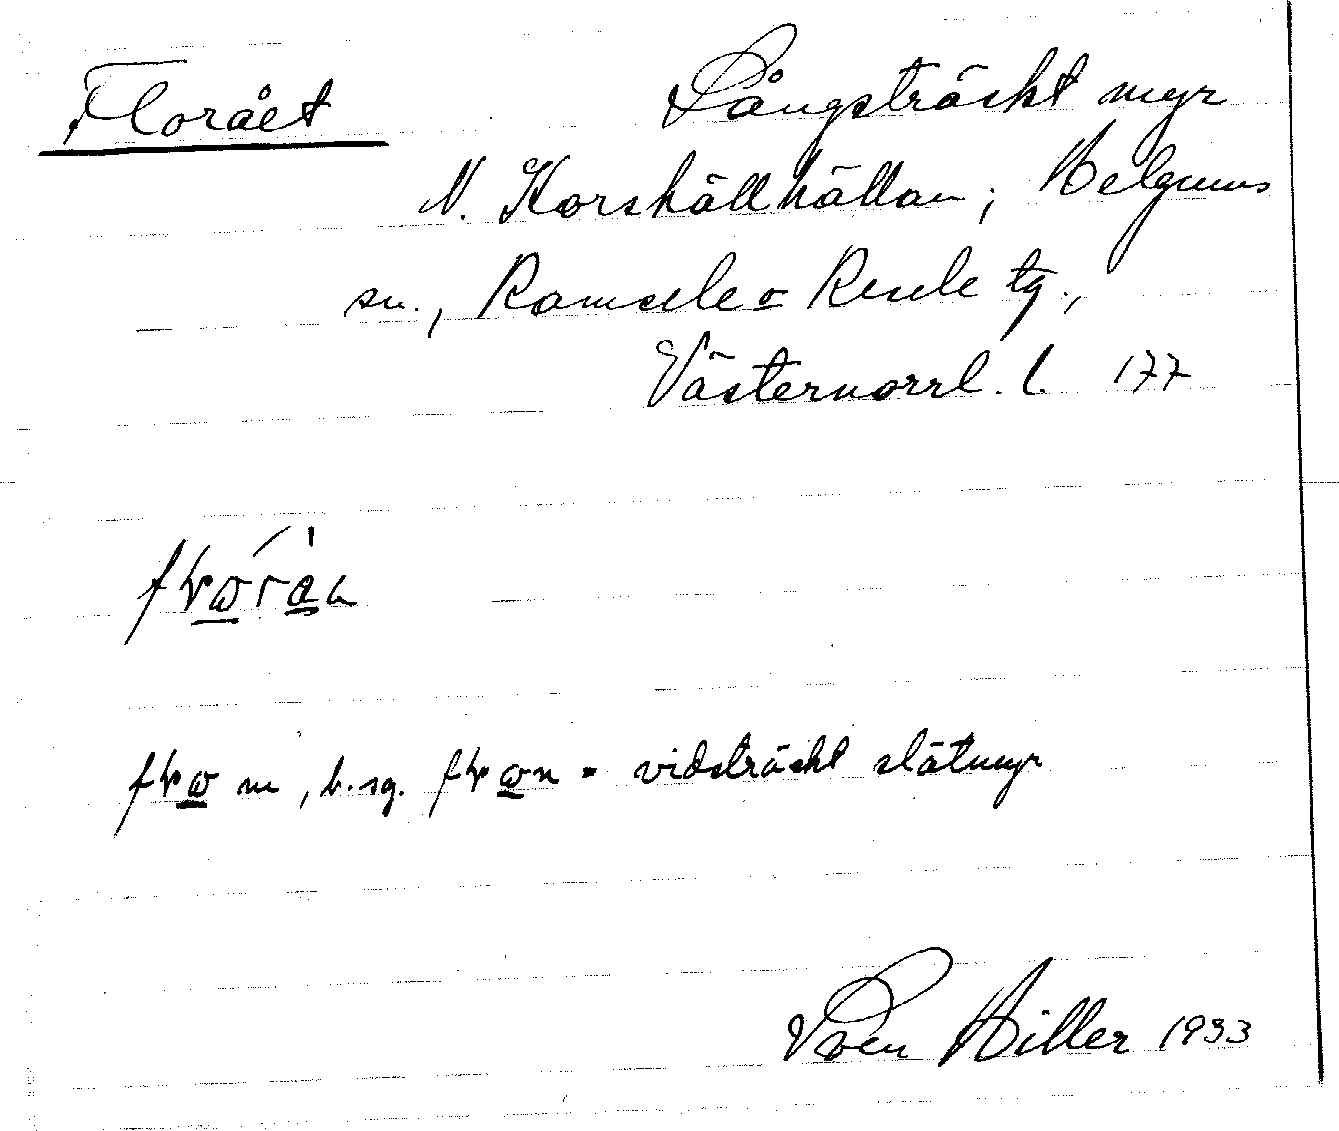 Florået
Långsträckt myr
N. Korskällhällan; Helgums
sn., Ramsele o Resele tg.,
Västernorrl. l. 177
m, b. sg. = vidsträckt slätmyr
Sven Hiller 1933